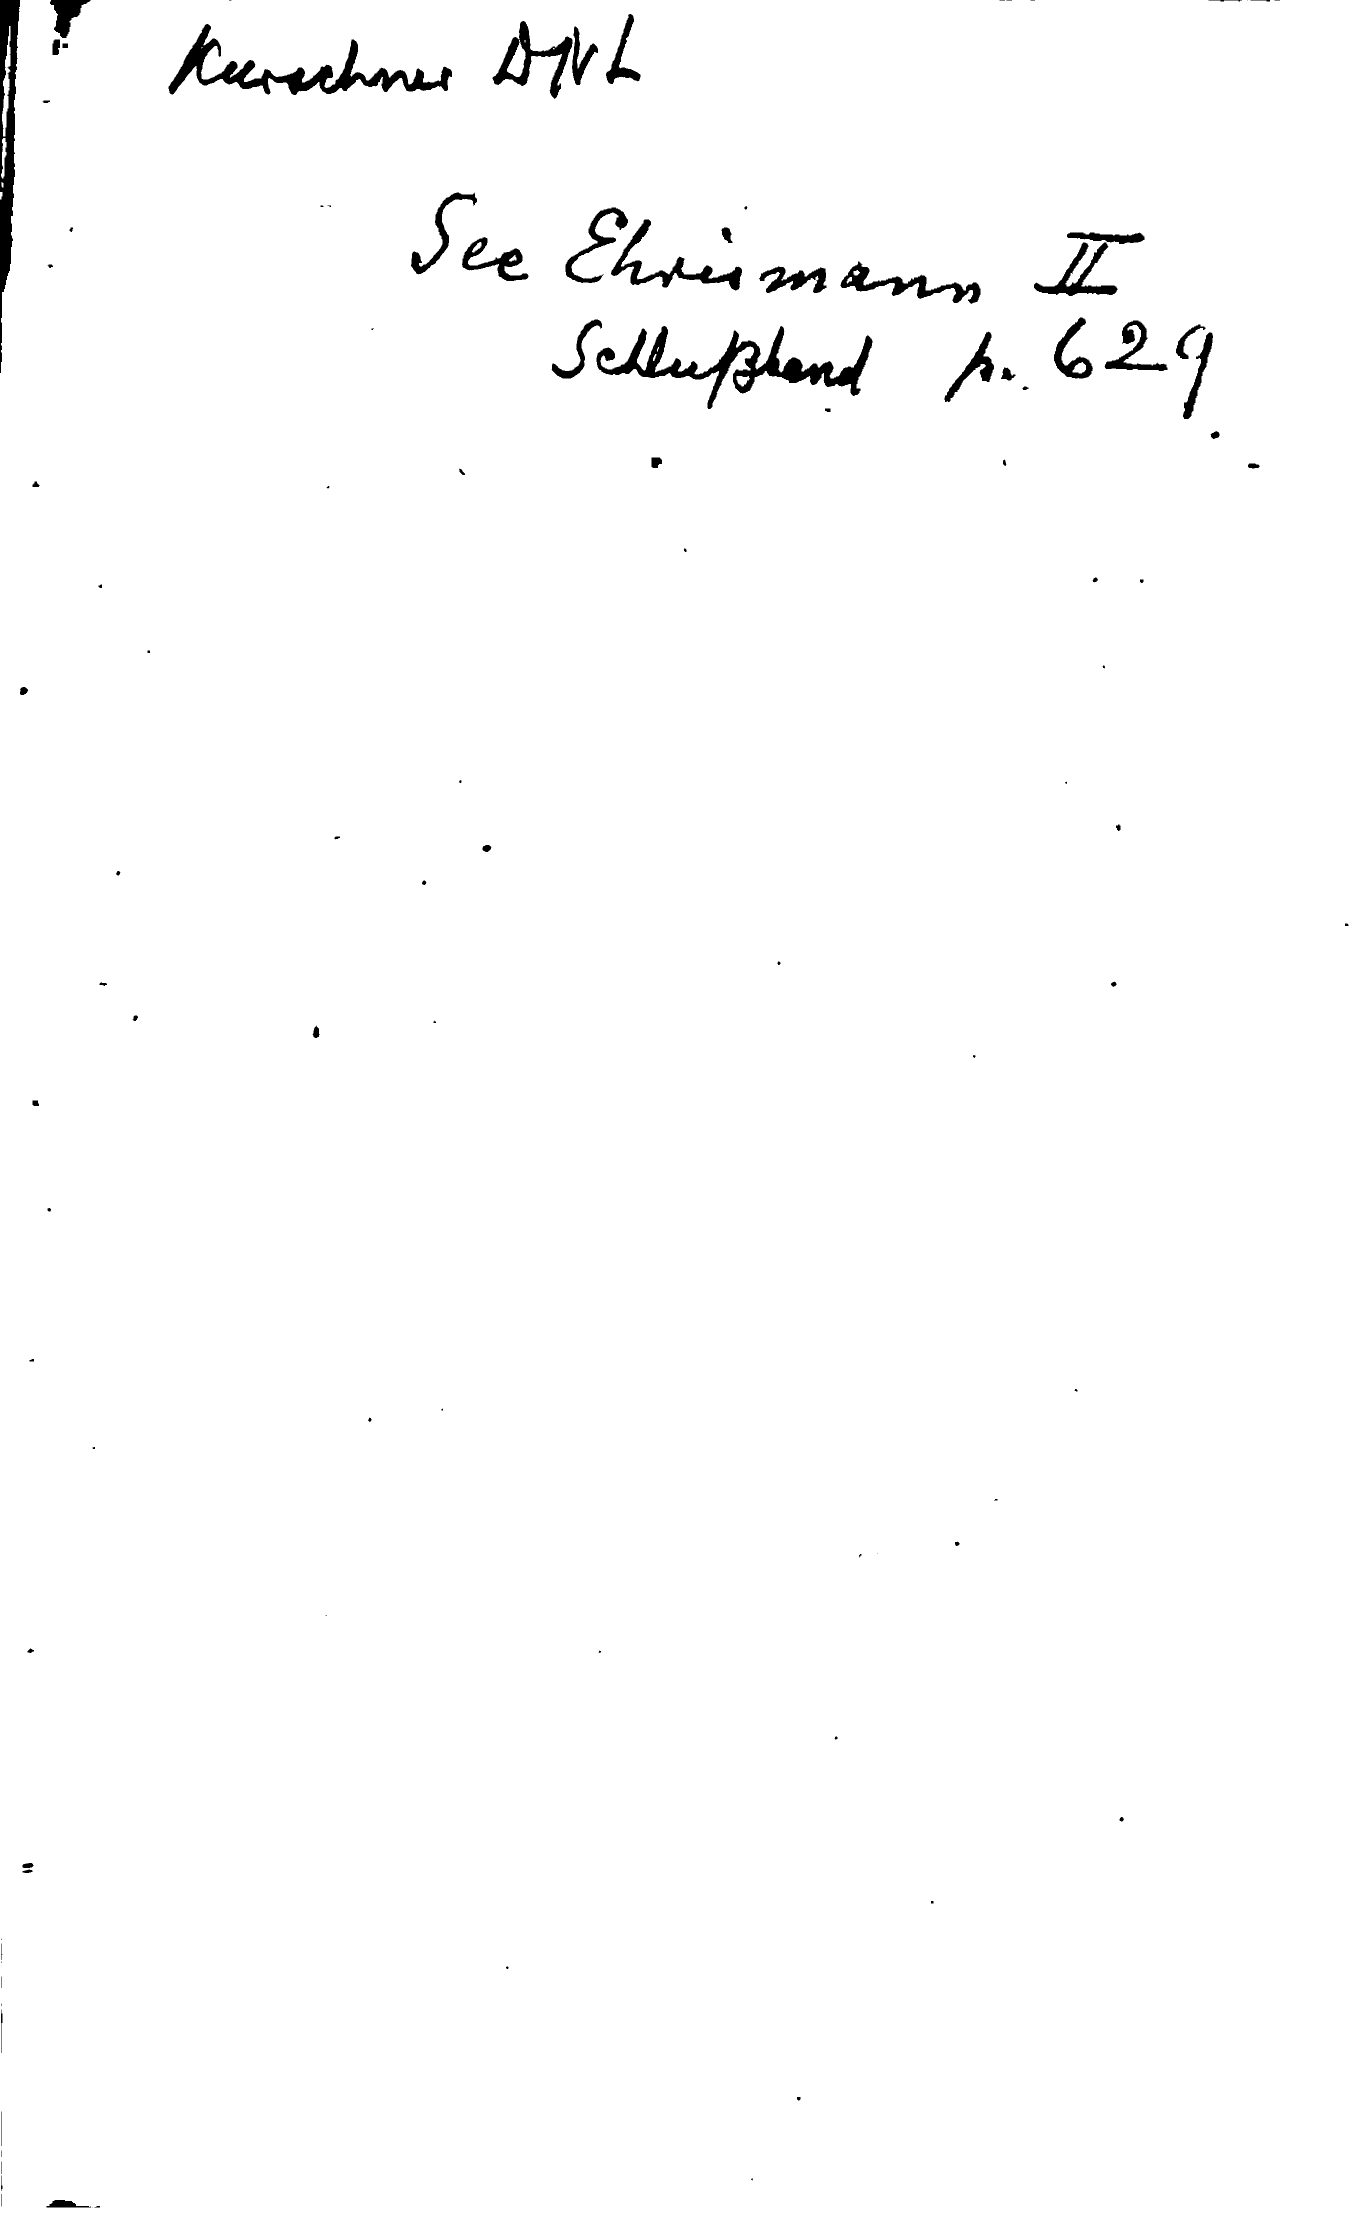 Kurschner DNL
See Ehrismann II
Schlußband p. 629